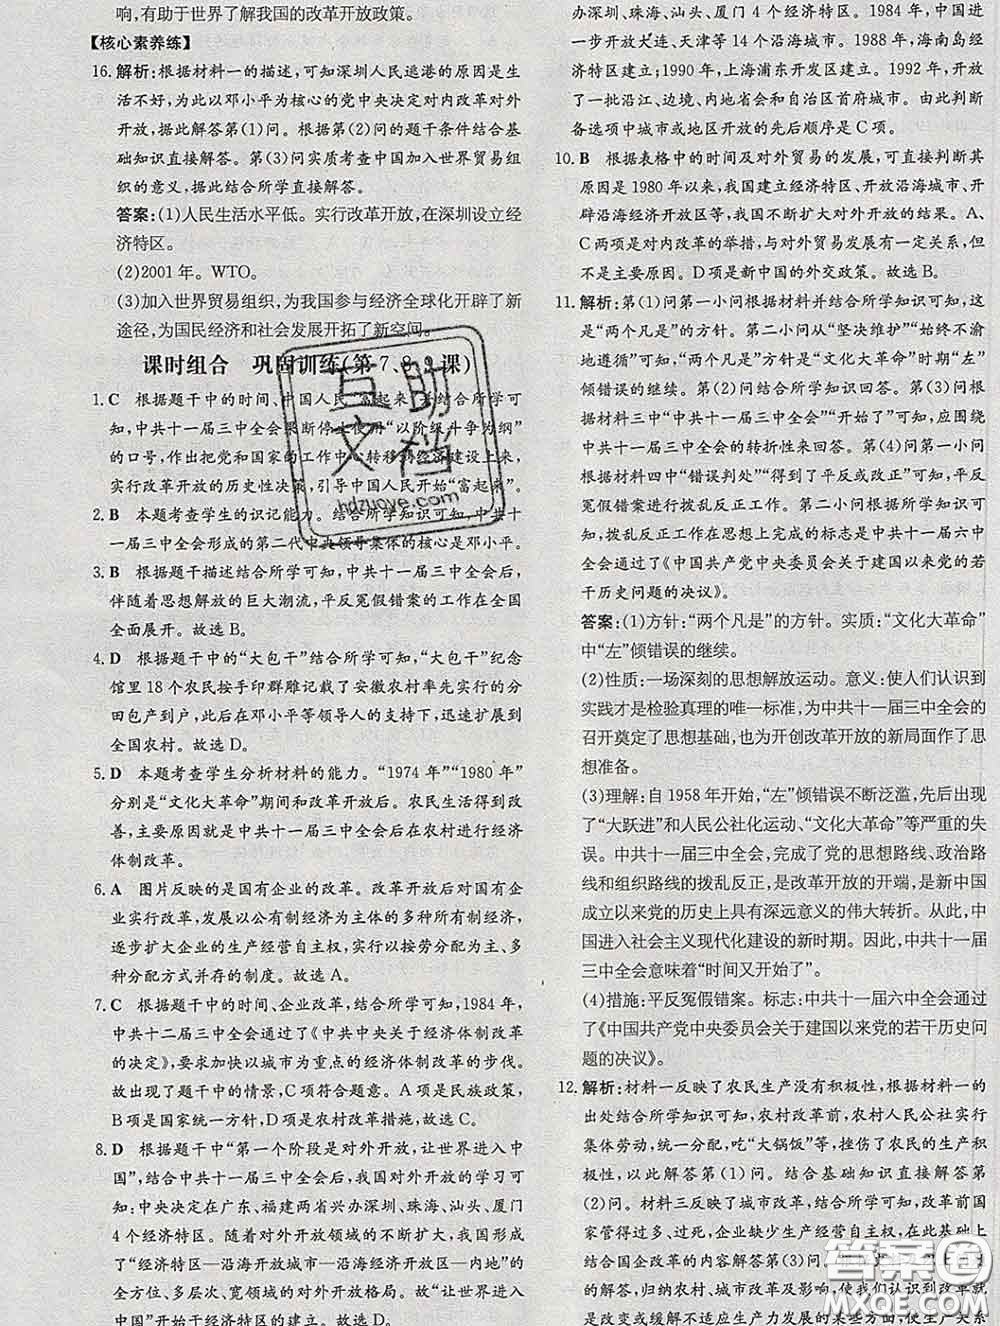 响,有助于世界了解我国的改革开放政策。
【核心素养练】
16. 解析:根据材料一的描述,可知深圳人民逃港的原因是生
活不好,为此以邓小平为核心的党中央决定对内改革对外
开放,据此解答第(1)问。根据第(2)问的题干条件结合基
础知识直接解答。第(3)问实质考查中国加入世界贸易组
织的意义,据此结合所学直接解答。
答案:(1)人民生活水平低。实行改革开放,在深圳设立经
济特区。
(2)2001年。WTO。
(3)加入世界贸易组织,为我国参与经济全球化开辟了新
途径,为国民经济和社会发展开拓了新空间。
课时组合 巩固训练(第7、8、9课)
1. C 根据题干中的时间、中国人民“富起来”并结合所学可
知,中共十一届三中全会果断停止使用“以阶级斗争为纲”
的口号,作出把党和国家的工作中心转移到经济建设上来,
实行改革开放的历史性决策,引导中国人民开始“富起来”。
2. B 本题考查学生的识记能力。结合所学知识可知,中共十
一届三中全会形成的第二代中央领导集体的核心是邓小平。
3. B 根据题干描述结合所学可知,中共十一届三中全会后,
伴随着思想解放的巨大潮流,平反冤假错案的工作在全国
全面展开。故选B。
4. D 根据题干中的“大包干”结合所学可知,“大包干”纪念
馆里18个农民按手印群雕记载了安徽农村率先实行的分
田包产到户,此后在邓小平等领导人的支持下,迅速扩展到
全国农村。故选D。
5. D 本题考查学生分析材料的能力。“1974年”“1980年”
分别是“文化大革命”期间和改革开放后。农民生活得到改
善,主要原因就是中共十一届三中全会后在农村进行经济
体制改革。
6. A 图片反映的是国有企业的改革。改革开放后对国有企
业实行改革,发展以公有制经济为主体的多种所有制经济,
逐步扩大企业的生产经营自主权,实行以按劳分配为主、多
种分配方式并存的制度。故选A。
7. C 根据题干中的时间、企业改革,结合所学可知,1984年,
中共十二届三中全会通过了《中共中央关于经济体制改革
的决定》,要求加快以城市为重点的经济体制改革的步伐。
故出现了题干中的情景,C项符合题意。A项是民族政策,
B项是国家统一方针,D项是农村改革措施。故选C。
8. D 根据题干中“第一个阶段是对外开放,让世界进入中
国”,结合中共十一届三中全会以来,我国对外开放的学习可
知:中央决定在广东、福建两省兴办深圳、珠海、汕头、厦门
4个经济特区。随着对外开放领域的不断扩大,我国形成
了“经济特区—沿海开放城市—沿海经济开放区—内地”的
全方位、多层次、宽领域的对外开放格局。故“让世界进入
中国”的主要措施是对外开放。故选D。
办深圳、珠海、汕头、厦门4个经济特区。1984年,中国进
一步开放大连、天津等14个沿海城市。1988年,海南岛经
济特区建立;1990年,上海浦东开发区建立。1992年,开放
了一批沿江、边境、内地省会和自治区首府城市。由此判断
各选项中城市或地区开放的先后顺序是C项。
10. B 根据表格中的时间及对外贸易的发展,可直接判断其
原因是1980年以来,我国建立经济特区、开放沿海城市、开
辟沿海经济开放区等,我国不断扩大对外开放的结果。A、
C两项是对内改革的举措,与对外贸易发展有一定关系,但
不是主要原因。D项是新中国的外交政策。故选B。
11. 解析:第(1)问第一小问根据材料并结合所学知识可知,这
是“两个凡是”的方针。第二小问从“坚决维护”“始终不渝
地遵循”可知,“两个凡是”方针是“文化大革命”时期“左”
倾错误的继续。第(2)问结合所学知识回答。第(3)问根
据材料三中“中共十一届三中全会”“开始了”可知,应围绕
中共十一届三中全会的转折性来回答。第(4)问第一小问
根据材料四中“错误判处”“得到了平反或改正”可知,平反
冤假错案进行拨乱反正工作。第二小问根据所学知识可
知,拨乱反正工作在思想上完成的标志是中共十一届六中
全会通过了《中国共产党中央委员会关于建国以来党的若
干历史问题的决议》。
答案:(1)方针:“两个凡是”的方针。实质:“文化大革命”
中“左”倾错误的继续。
(2)性质:一场深刻的思想解放运动。意义:使人们认识到
实践才是检验真理的唯一标准,为中共十一届三中全会的
召开奠定了思想基础,也为开创改革开放的新局面作了思
想准备。
(3)理解:自1958年开始,“左”倾错误不断泛滥,先后出现
了“大跃进”和人民公社化运动、“文化大革命”等严重的失
误。中共十一届三中全会,完成了党的思想路线、政治路
线和组织路线的拨乱反正,是改革开放的开端,是新中国
成立以来党的历史上具有深远意义的伟大转折。从此,中
国进入社会主义现代化建设的新时期。因此,中共十一届
三中全会意味着“时间又开始了”。
(4)措施:平反冤假错案。标志:中共十一届六中全会通过
了《中国共产党中央委员会关于建国以来党的若干历史问
题的决议》。
12. 解析:材料一反映了农民生产没有积极性,根据材料一的
出处结合所学知识可知,农村改革前,农村人民公社实行
集体劳动,统一分配,吃“大锅饭”等,挫伤了农民的生产积
极性,以此解答第(1)问。结合基础知识直接解答第
(2)问。材料三反映了城市改革,结合所学可知,改革前国
家管得过多、过死,企业缺少生产经营自主权,在此基础上
结合国企改革的内容解答第(3)问
的解答,归纳农村、城市改革及影响,使其认识到改革就
是改变或缓解不适应生产力发展的
互助文档
hdzuoye.com
答案圈
MXQE.COM